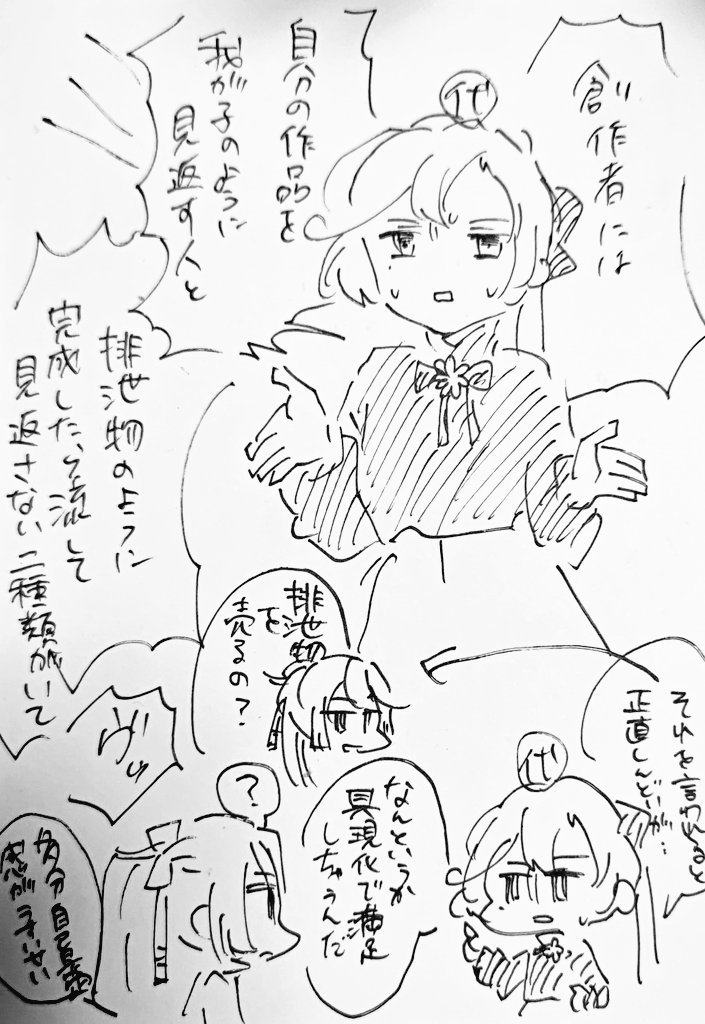 創作者には
代
自分の作品を
我が子のように
見返す人と
排泄物のように
完成したら流して
見返さない二種類がいて
排泄物
を
売るの?
ヴッ
それを言われると
正直しんどいが…
代
なんというか
具現化で満足
しちゃうんだ
?
多分自己
感がうすい